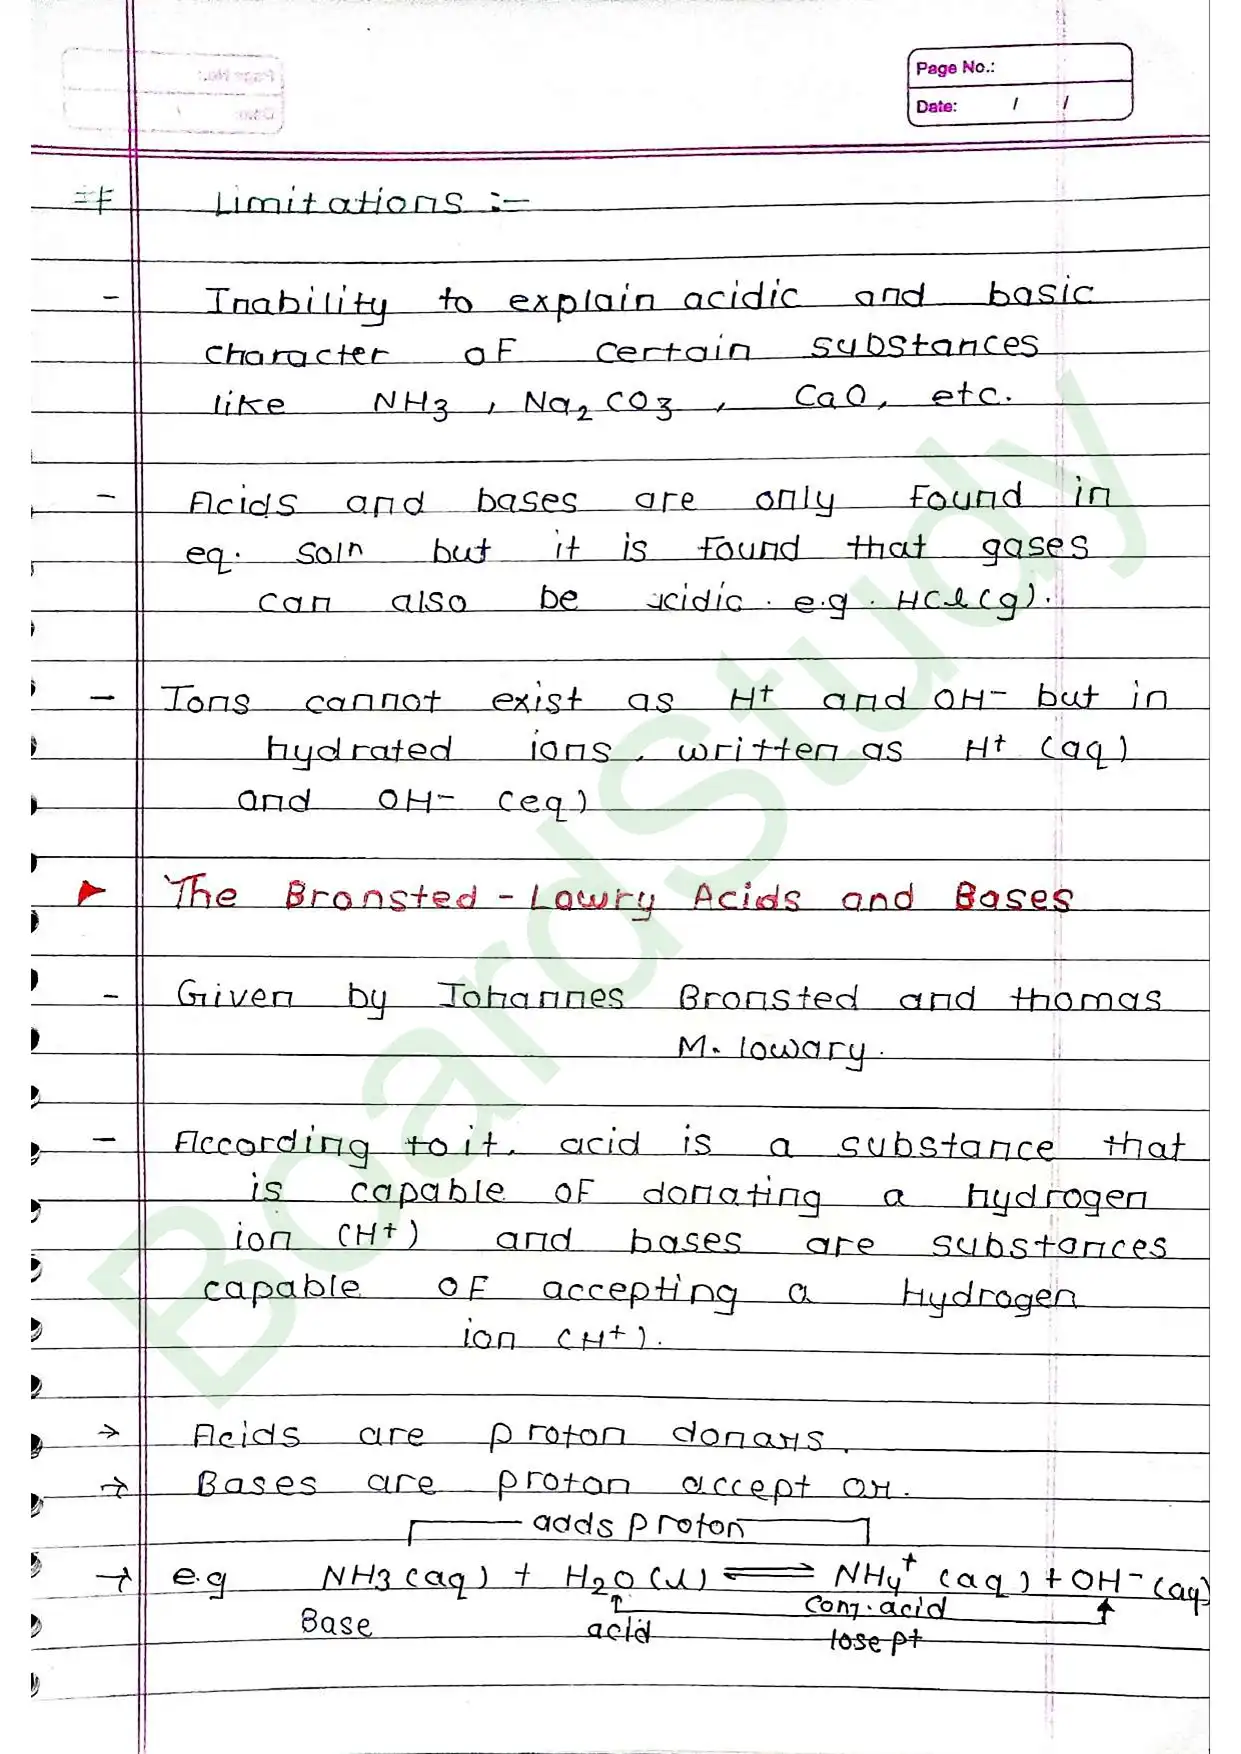 Page No.:
Date: / /
# Limitations :-
- Inability to explain acidic and basic
character of certain substances
like NH3, Na2CO3, CaO, etc.
- Acids and bases are only found in
eq. soln but it is found that gases
can also be acidic. e.g. HCl(g).
- Ions cannot exist as H+ and OH- but in
hydrated ions, written as H+ (aq)
and OH- (eq)
➤ The Bronsted - Lowry Acids and Bases
- Given by Johannes Bronsted and thomas
M. lowary.
- According to it, acid is a substance that
is capable of donating a hydrogen
ion (H+) and bases are substances
capable of accepting a Hydrogen
ion (H+).
→ Acids are proton donars.
→ Bases are proton acceptor.
adds proton
→ e.g NH3(aq) + H2O(l) ⇌ NH4+ (aq) + OH-(aq)
Base acid Conj. acid
lose pt
BoardStudy